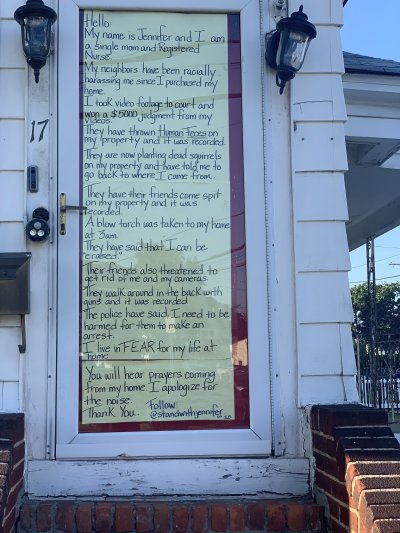 Hello.
My name is Jennifer and I am
a single mom and Registered
Nurse.
My neighbors have been racially
harassing me since I purchased my
home.
I took video footage to court and
won a $5000 judgment from my
videos.
They have thrown Human feces on
my property and it was recorded.
They are now planting dead squirrels
on my property and have told me to
go back to where I came from.
They have their friends come spit
on my property and it was
recorded.
A blow torch was taken to my home
at 3am.
They have said that "I can be
erased."
Their friends also threatened to
get rid of me and my cameras.
They walk around in the back with
guns and it was recorded
The police have said I need to be
harmed for them to make an
arrest.
I live in FEAR for my life at
home
You will hear prayers coming
from my home. I apologize for
the noise.
Thank You. Follow
@standwithjennifer
17